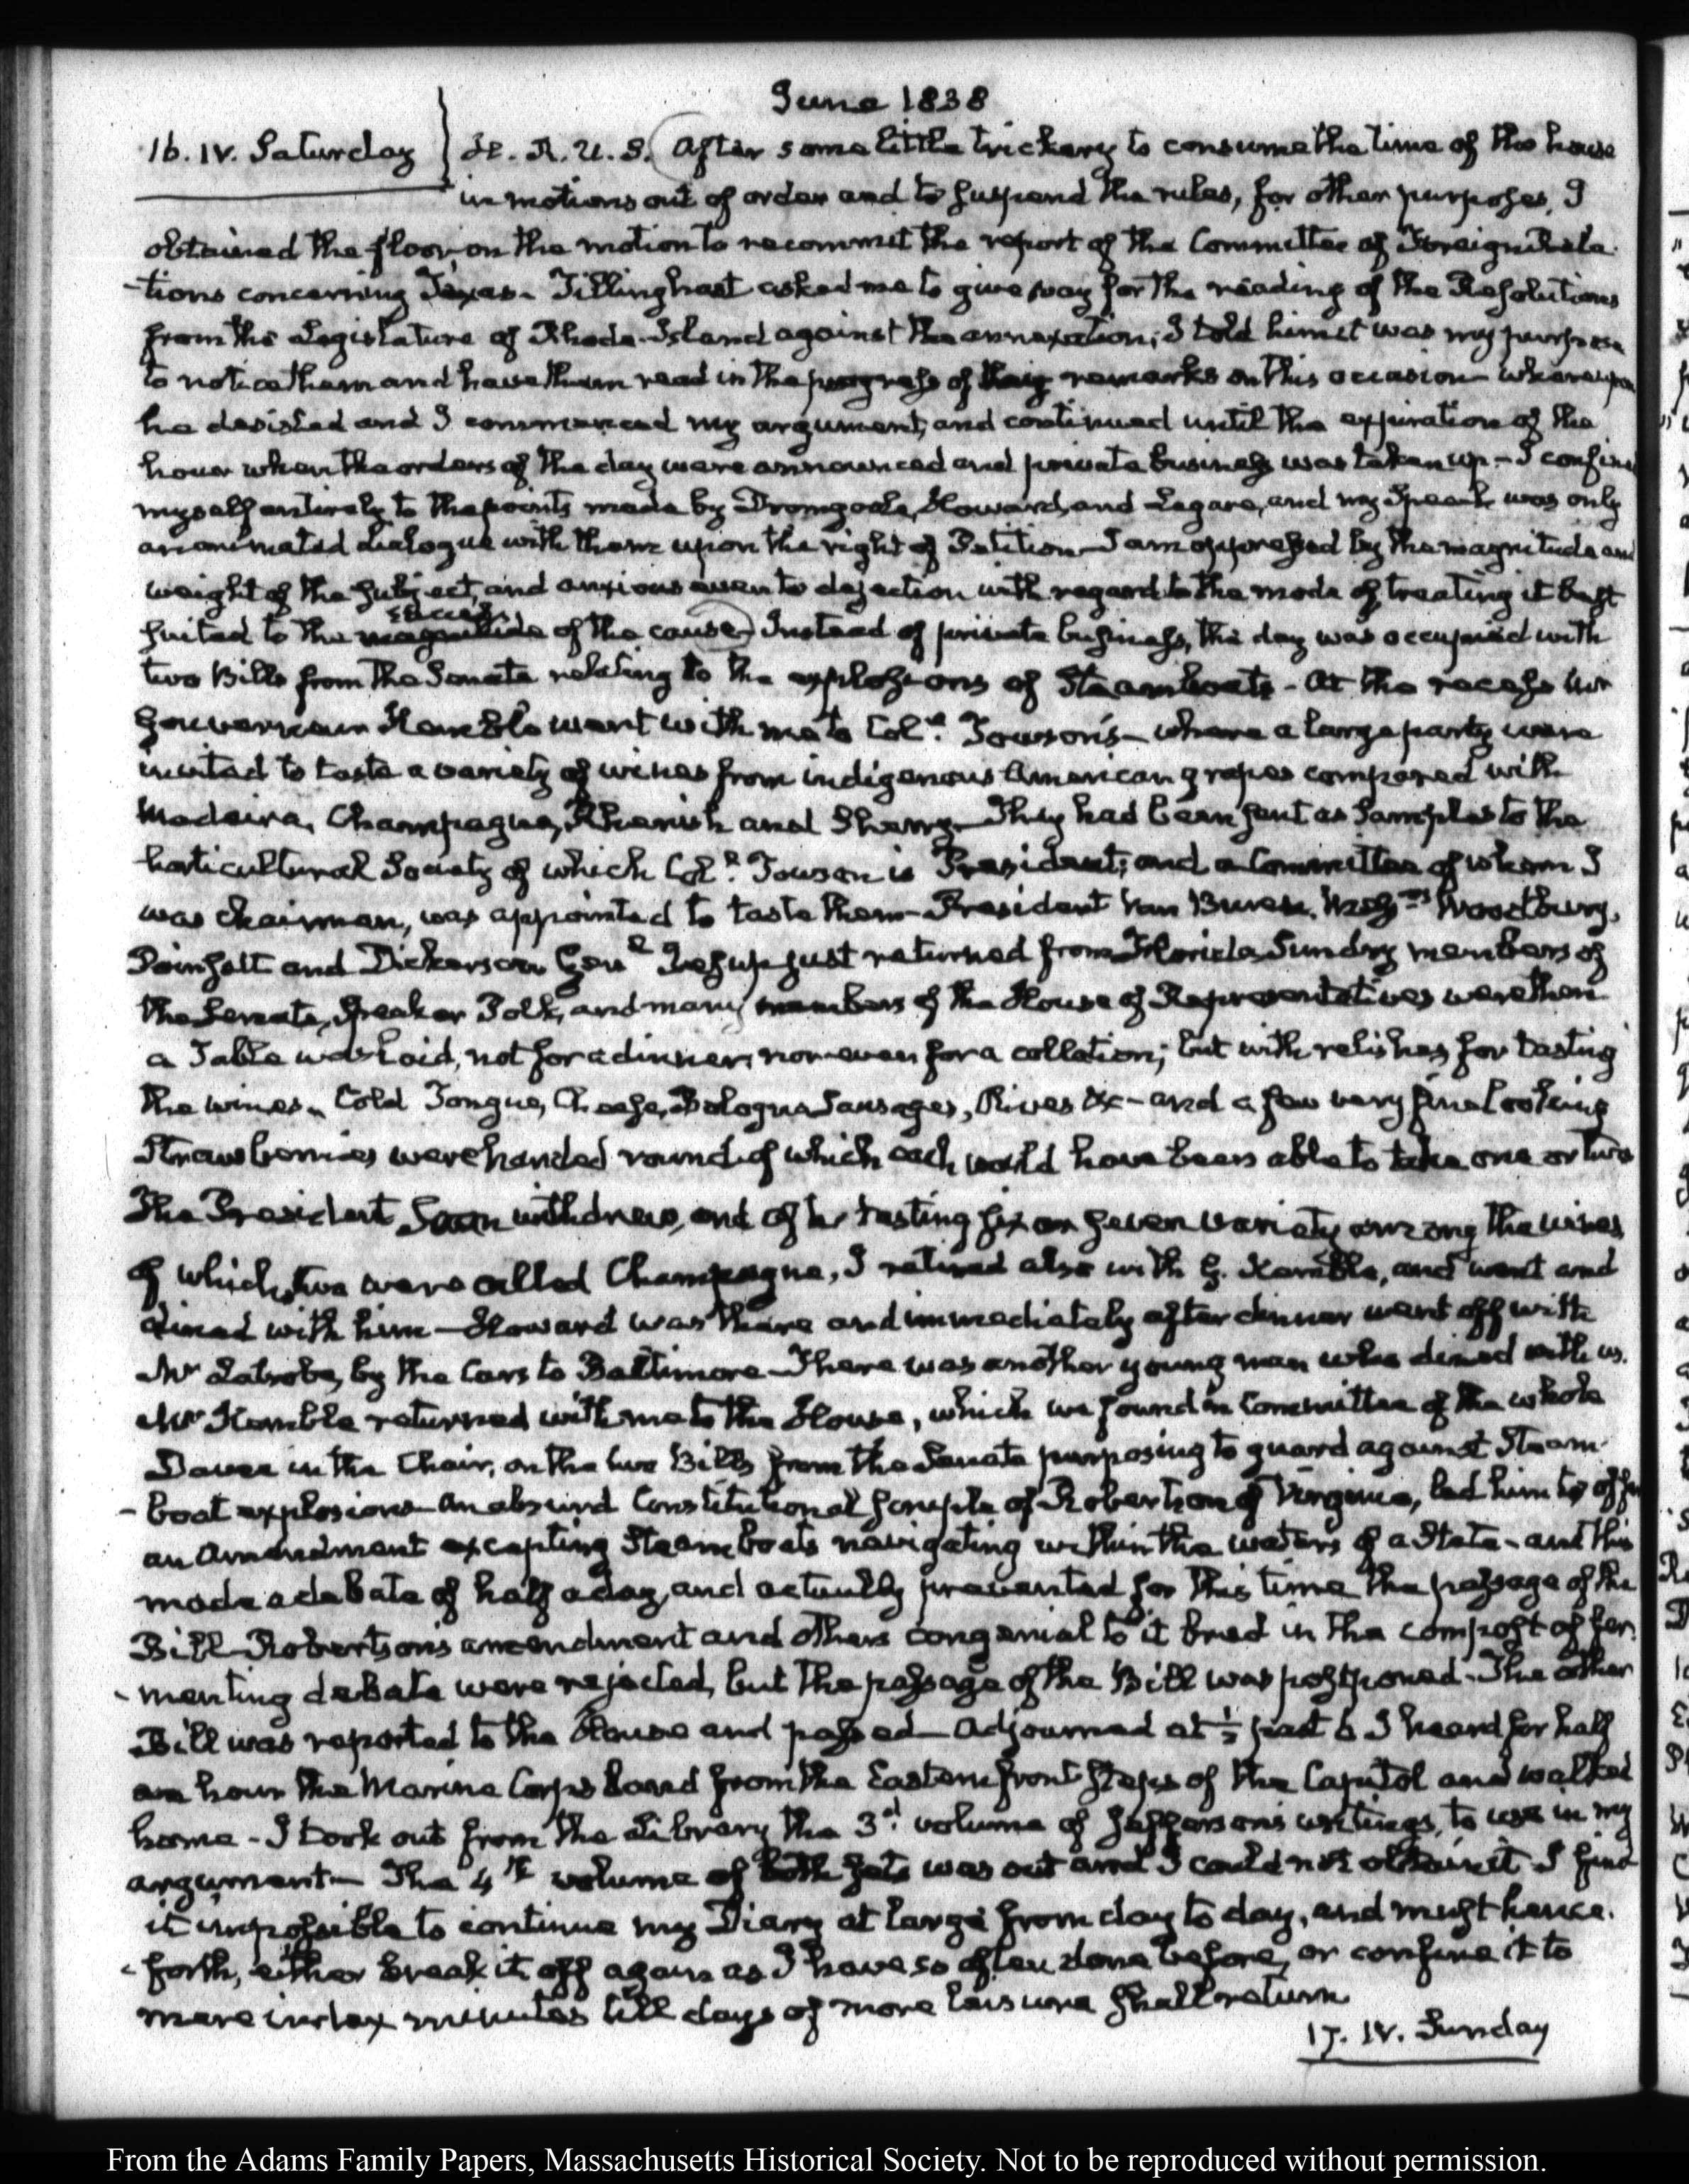 June 1838
16. IV. Saturday
H. R. U. S. After some little trickery to consume the time of the house
in motions out of order and to suspend the rules, for other purposes, I
obtained the floor, on the motion to recommit the report of the Committee of Foreign Rela-
-tions concerning Texas. Tillinghast asked me to give way for the reading of the Resolutions
from the Legislature of Rhode-Island against the annexation; I told him it was my purpose
to notice them and have them read in the progress of my remarks on this occasion whereupon
he desisted and I commenced my argument, and continued until the expiration of the
hour when the orders of the day were announced and private business was taken up. I confined
myself entirely to the points made by Dromgoole, Howard, and Legare, and my Speech was only
an animated dialogue with them upon the right of Petition. I am oppressed by the magnitude and
weight of the subject, and anxious even to dejection with regard to the mode of treating it best
suited to the success
of the cause. Instead of private business, the day was occupied with
two Bills from the Senate relating to the explosions of Steamboats. At the recess Mr
Gouverneur Kemble went with me to Coln. Towson's where a large party were
invited to taste a variety of wines from indigenous American grapes compared with
Madeira, Champagne, Rhenish and Sherry. They had been sent as samples to the
horticultural Society of which Coln. Towson is President; and a Committee of whom I
was chairman, was appointed to taste them. President Van Buren, Messrs Woodbury,
Poinsett and Dickerson Genl Jesup just returned from Florida, Sundry members of
the Senate, Speaker Polk, and many members of the House of Representatives were there
a Table was laid, not for a dinner, nor even for a collation; but with relishes for tasting
the wines. Cold Tongue, Cheese, Bologna Sausages, Olives &c- and a few very fine looking
Strawberries were handed round of which each could have been able to take one or two
The President soon withdrew, and after tasting six or seven variety among the wines
of which two were called Champagne, I retired also with G. Kemble, and went and
dined with him—Howard was there and immediately after dinner went off with
Mr Latrobe, by the Cars to Baltimore. There was another young man who dined with us.
Mr Kemble returned with me to the House, which we found in Committee of the whole
Davee in the Chair, on the two Bills from the Senate purposing to guard against Steam-
-boat explosions. An absurd Constitutional scruple of Robertson of Virginia, led him to offer
an Amendment excepting Steamboats navigating within the waters of a State. and this
made a debate of half a day, and actually prevented for this time the passage of the
Bill. Robertson's amendment and others congenial to it bred in the compost of fer-
-menting debate were rejected, but the passage of the Bill was postponed. The other
Bill was reported to the House and passed. Adjourned at ½ past 6 I heard for half
an hour the Marine Corps band from the Eastern front steps of the Capitol and walked
home. I took out from the Library the 3d. volume of Jefferson's writings, to use in my
argument. The 4th volume of both sets was out and I could not obtain it. I find
it impossible to continue my Diary at large from day to day, and must hence-
-forth, either break it off again as I have so often done before, or confine it to
mere index minutes till days of more leisure shall return
17. IV. Sunday
From the Adams Family Papers, Massachusetts Historical Society. Not to be reproduced without permission.